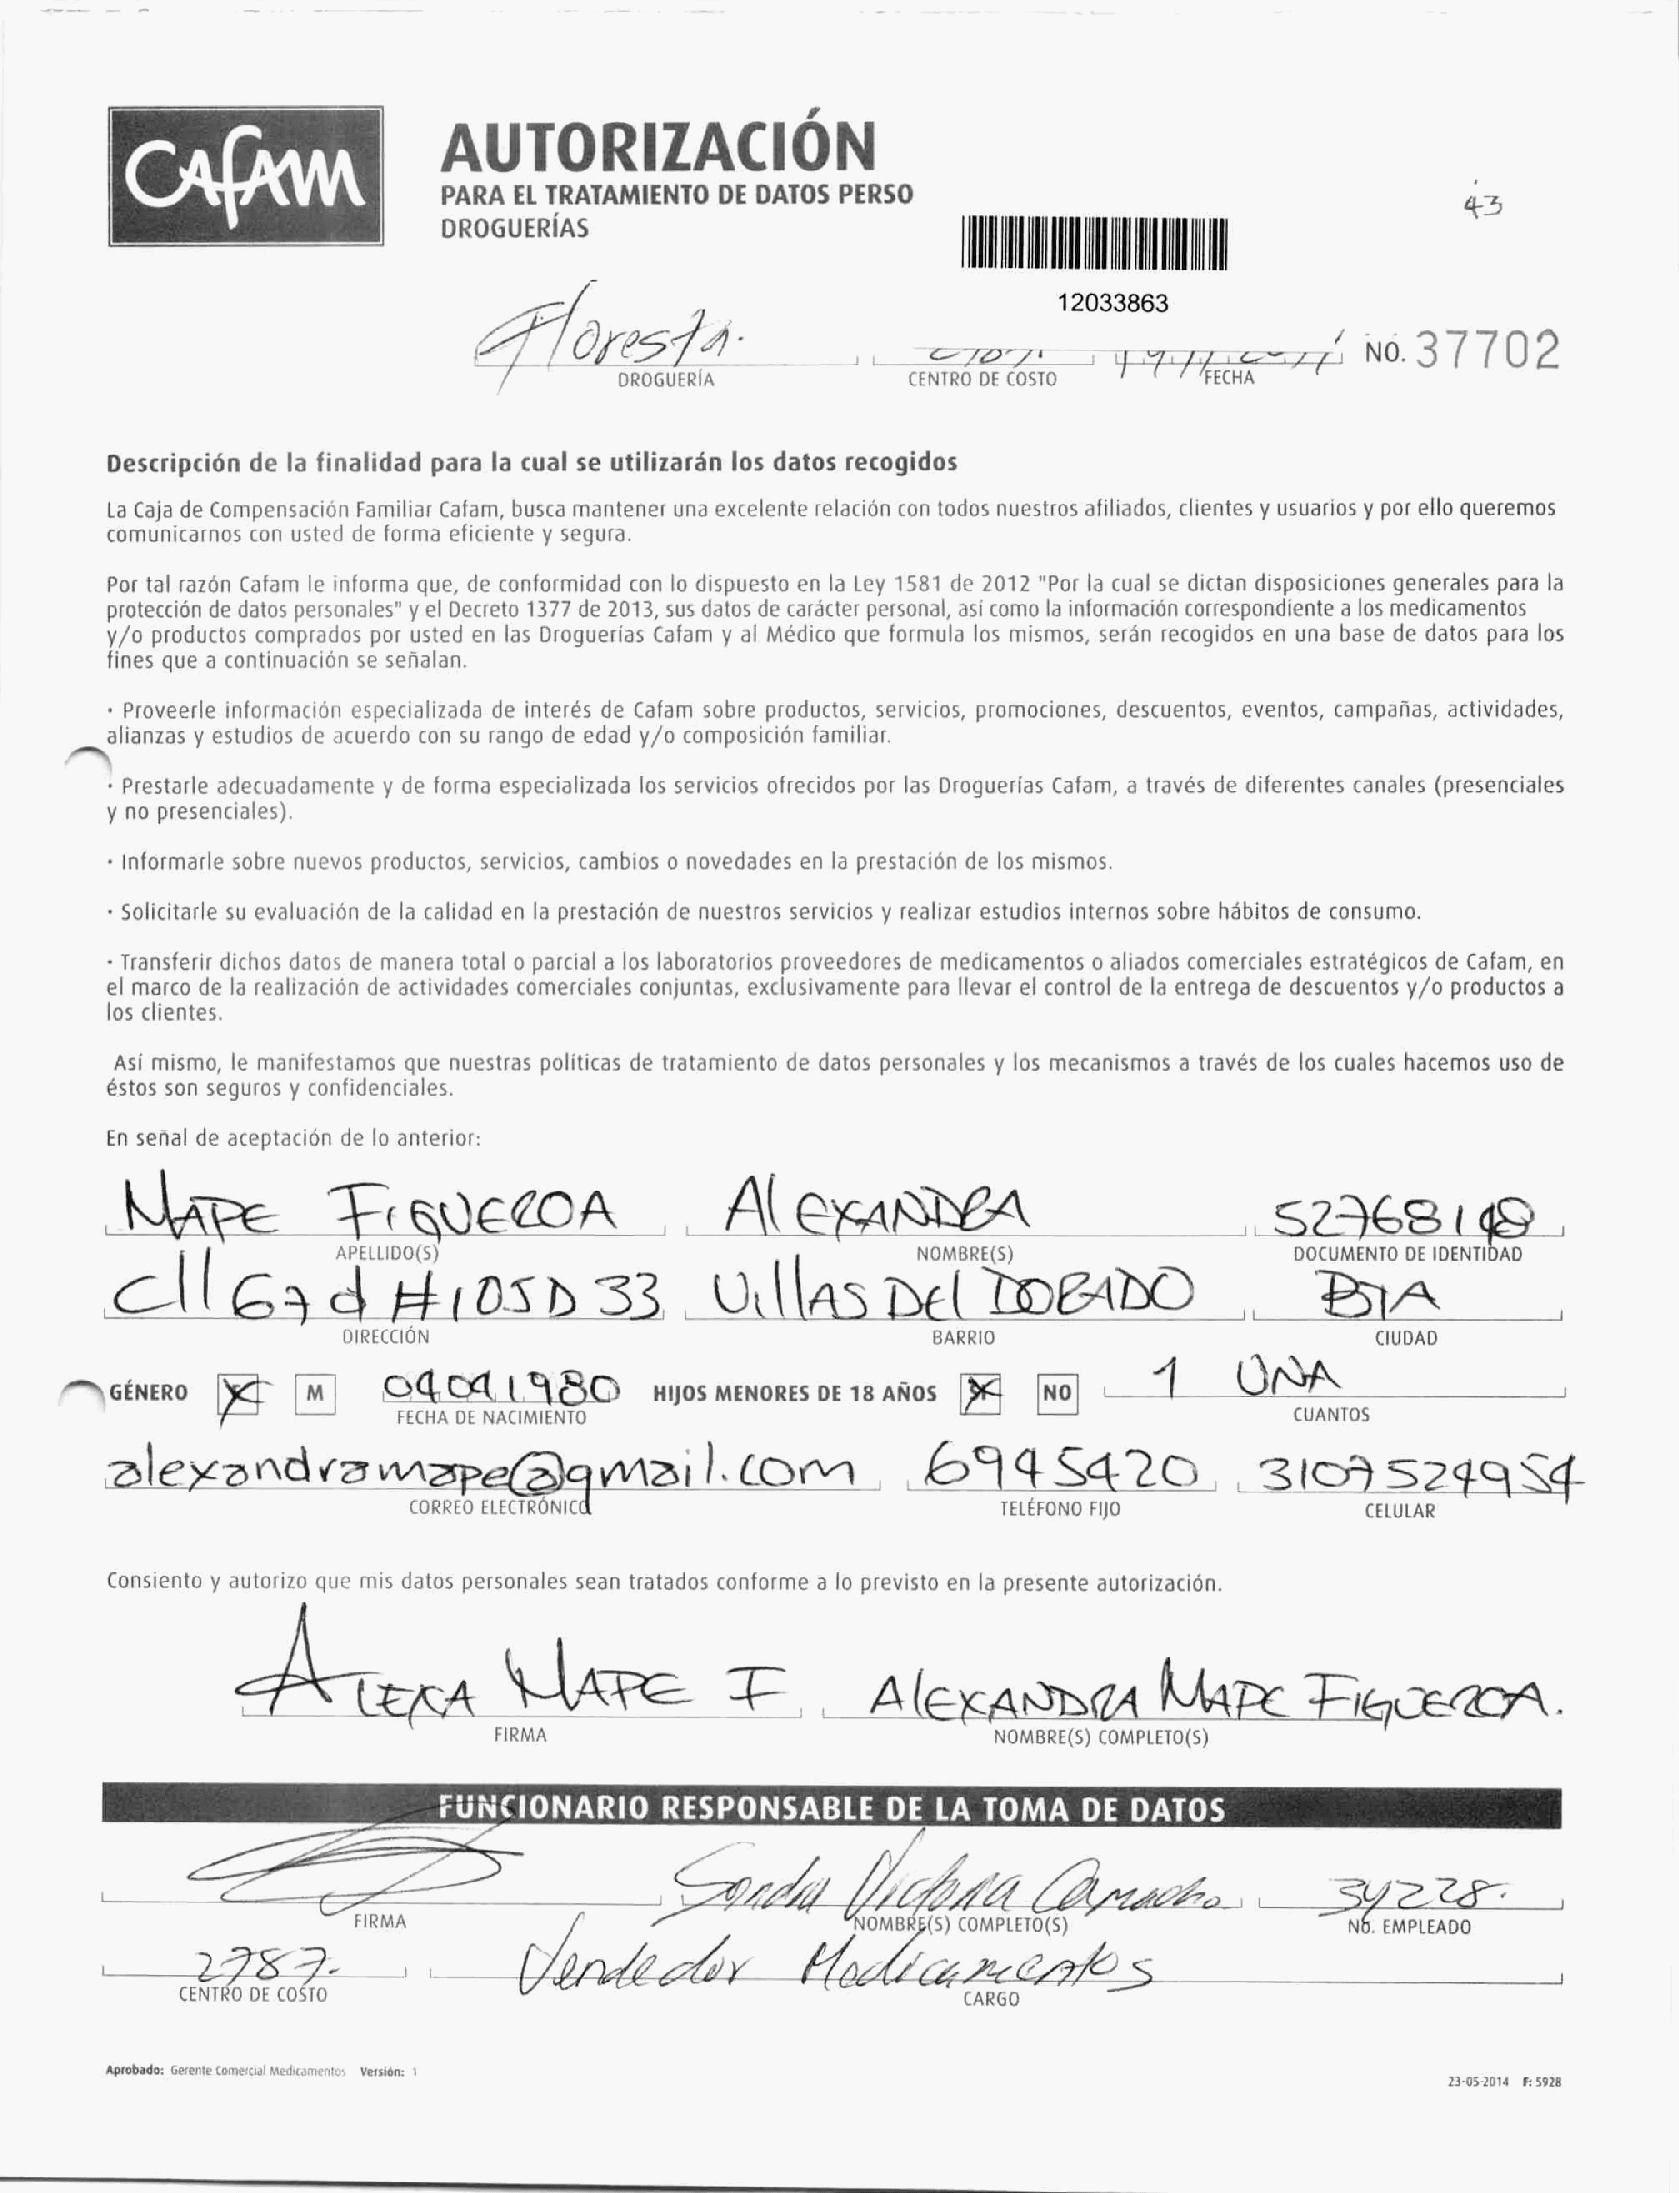 CAFAM
AUTORIZACIÓN
PARA EL TRATAMIENTO DE DATOS PERSO
DROGUERÍAS
43
12033863
Floresta.
NO. 37702
DROGUERÍA CENTRO DE COSTO FECHA
Descripción de la finalidad para la cual se utilizarán los datos recogidos
La Caja de Compensación Familiar Cafam, busca mantener una excelente relación con todos nuestros afiliados, clientes y usuarios y por ello queremos
comunicarnos con usted de forma eficiente y segura.
Por tal razón Cafam le informa que, de conformidad con lo dispuesto en la Ley 1581 de 2012 "Por la cual se dictan disposiciones generales para la
protección de datos personales" y el Decreto 1377 de 2013, sus datos de carácter personal, así como la información correspondiente a los medicamentos
y/o productos comprados por usted en las Droguerías Cafam y al Médico que formula los mismos, serán recogidos en una base de datos para los
fines que a continuación se señalan.
· Proveerle información especializada de interés de Cafam sobre productos, servicios, promociones, descuentos, eventos, campañas, actividades,
alianzas y estudios de acuerdo con su rango de edad y/o composición familiar.
· Prestarle adecuadamente y de forma especializada los servicios ofrecidos por las Droguerías Cafam, a través de diferentes canales (presenciales
y no presenciales).
· Informarle sobre nuevos productos, servicios, cambios o novedades en la prestación de los mismos.
· Solicitarle su evaluación de la calidad en la prestación de nuestros servicios y realizar estudios internos sobre hábitos de consumo.
· Transferir dichos datos de manera total o parcial a los laboratorios proveedores de medicamentos o aliados comerciales estratégicos de Cafam, en
el marco de la realización de actividades comerciales conjuntas, exclusivamente para llevar el control de la entrega de descuentos y/o productos a
los clientes.
Así mismo, le manifestamos que nuestras políticas de tratamiento de datos personales y los mecanismos a través de los cuales hacemos uso de
éstos son seguros y confidenciales.
En señal de aceptación de lo anterior:
MAPE FIGUEROA AlEXANDRA
APELLIDO(S) NOMBRE(S) DOCUMENTO DE IDENTIDAD
Cll 67 d #105D 33 VillAS DEl DORADO BTA
DIRECCIÓN BARRIO CIUDAD
GÉNERO X M 04041980 HIJOS MENORES DE 18 AÑOS X NO 1 UNA
FECHA DE NACIMIENTO CUANTOS
alexandramape@gmail.com 6945420 3107524954
CORREO ELECTRÓNICO TELÉFONO FIJO CELULAR
Consiento y autorizo que mis datos personales sean tratados conforme a lo previsto en la presente autorización.
ALEXA MAPE F AlEXANDRA MAPE FIGUEROA.
FIRMA NOMBRE(S) COMPLETO(S)
FUNCIONARIO RESPONSABLE DE LA TOMA DE DATOS
Sandra Victoria Camacho 34228.
FIRMA NOMBRE(S) COMPLETO(S) NO. EMPLEADO
2787. Vendedor Medicamentos
CENTRO DE COSTO CARGO
Aprobado: Gerente Comercial Medicamentos Versión: 1
23-05-2014 F: 5928